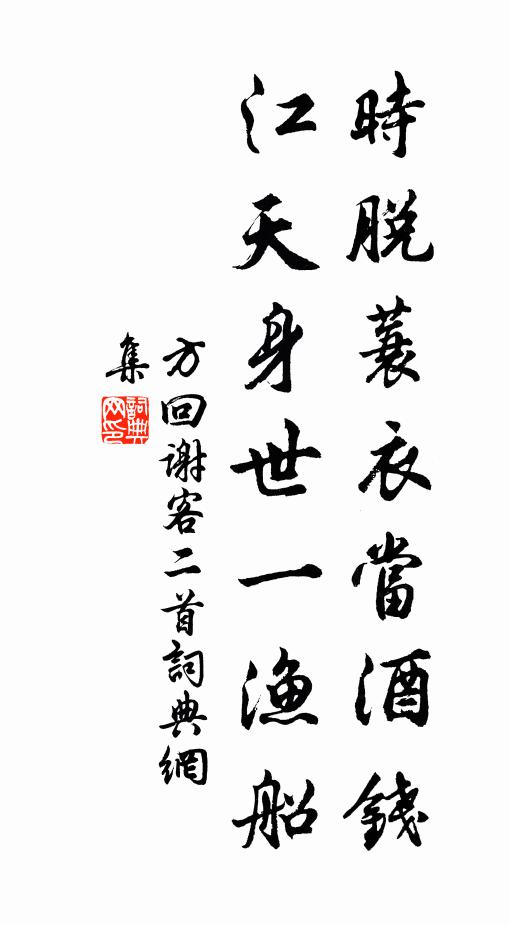 時脫蓑衣當酒錢
江天身世一漁船
方回謝客二首詞典網
集
詞典
网印